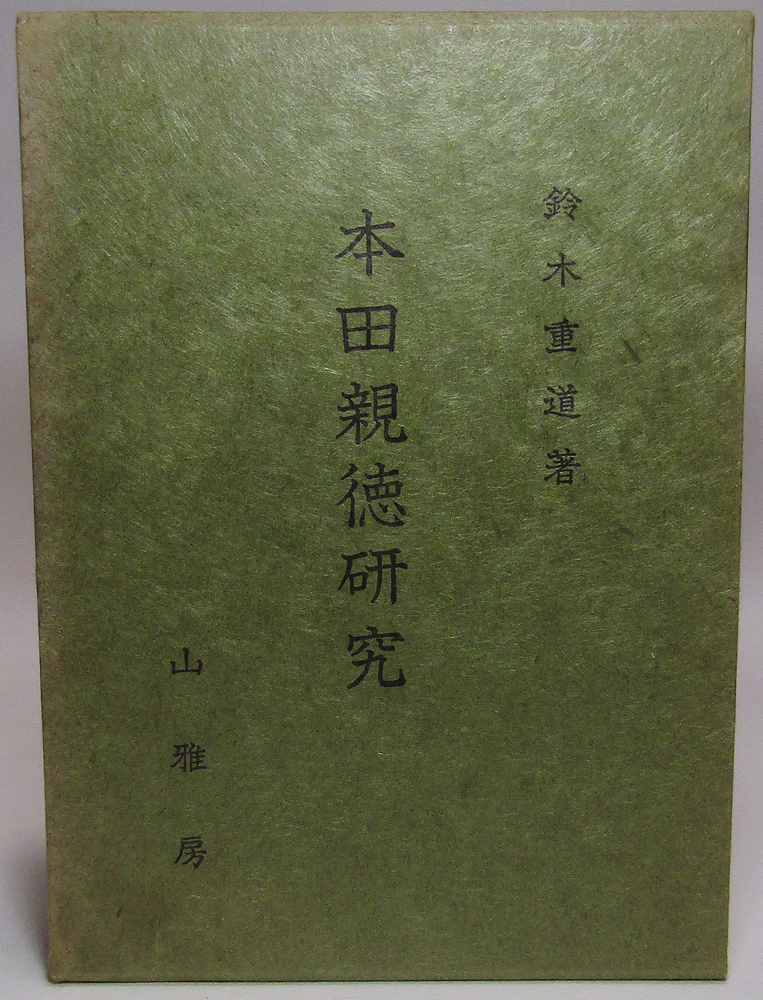 鈴木重道著
本田親徳研究
山雅房